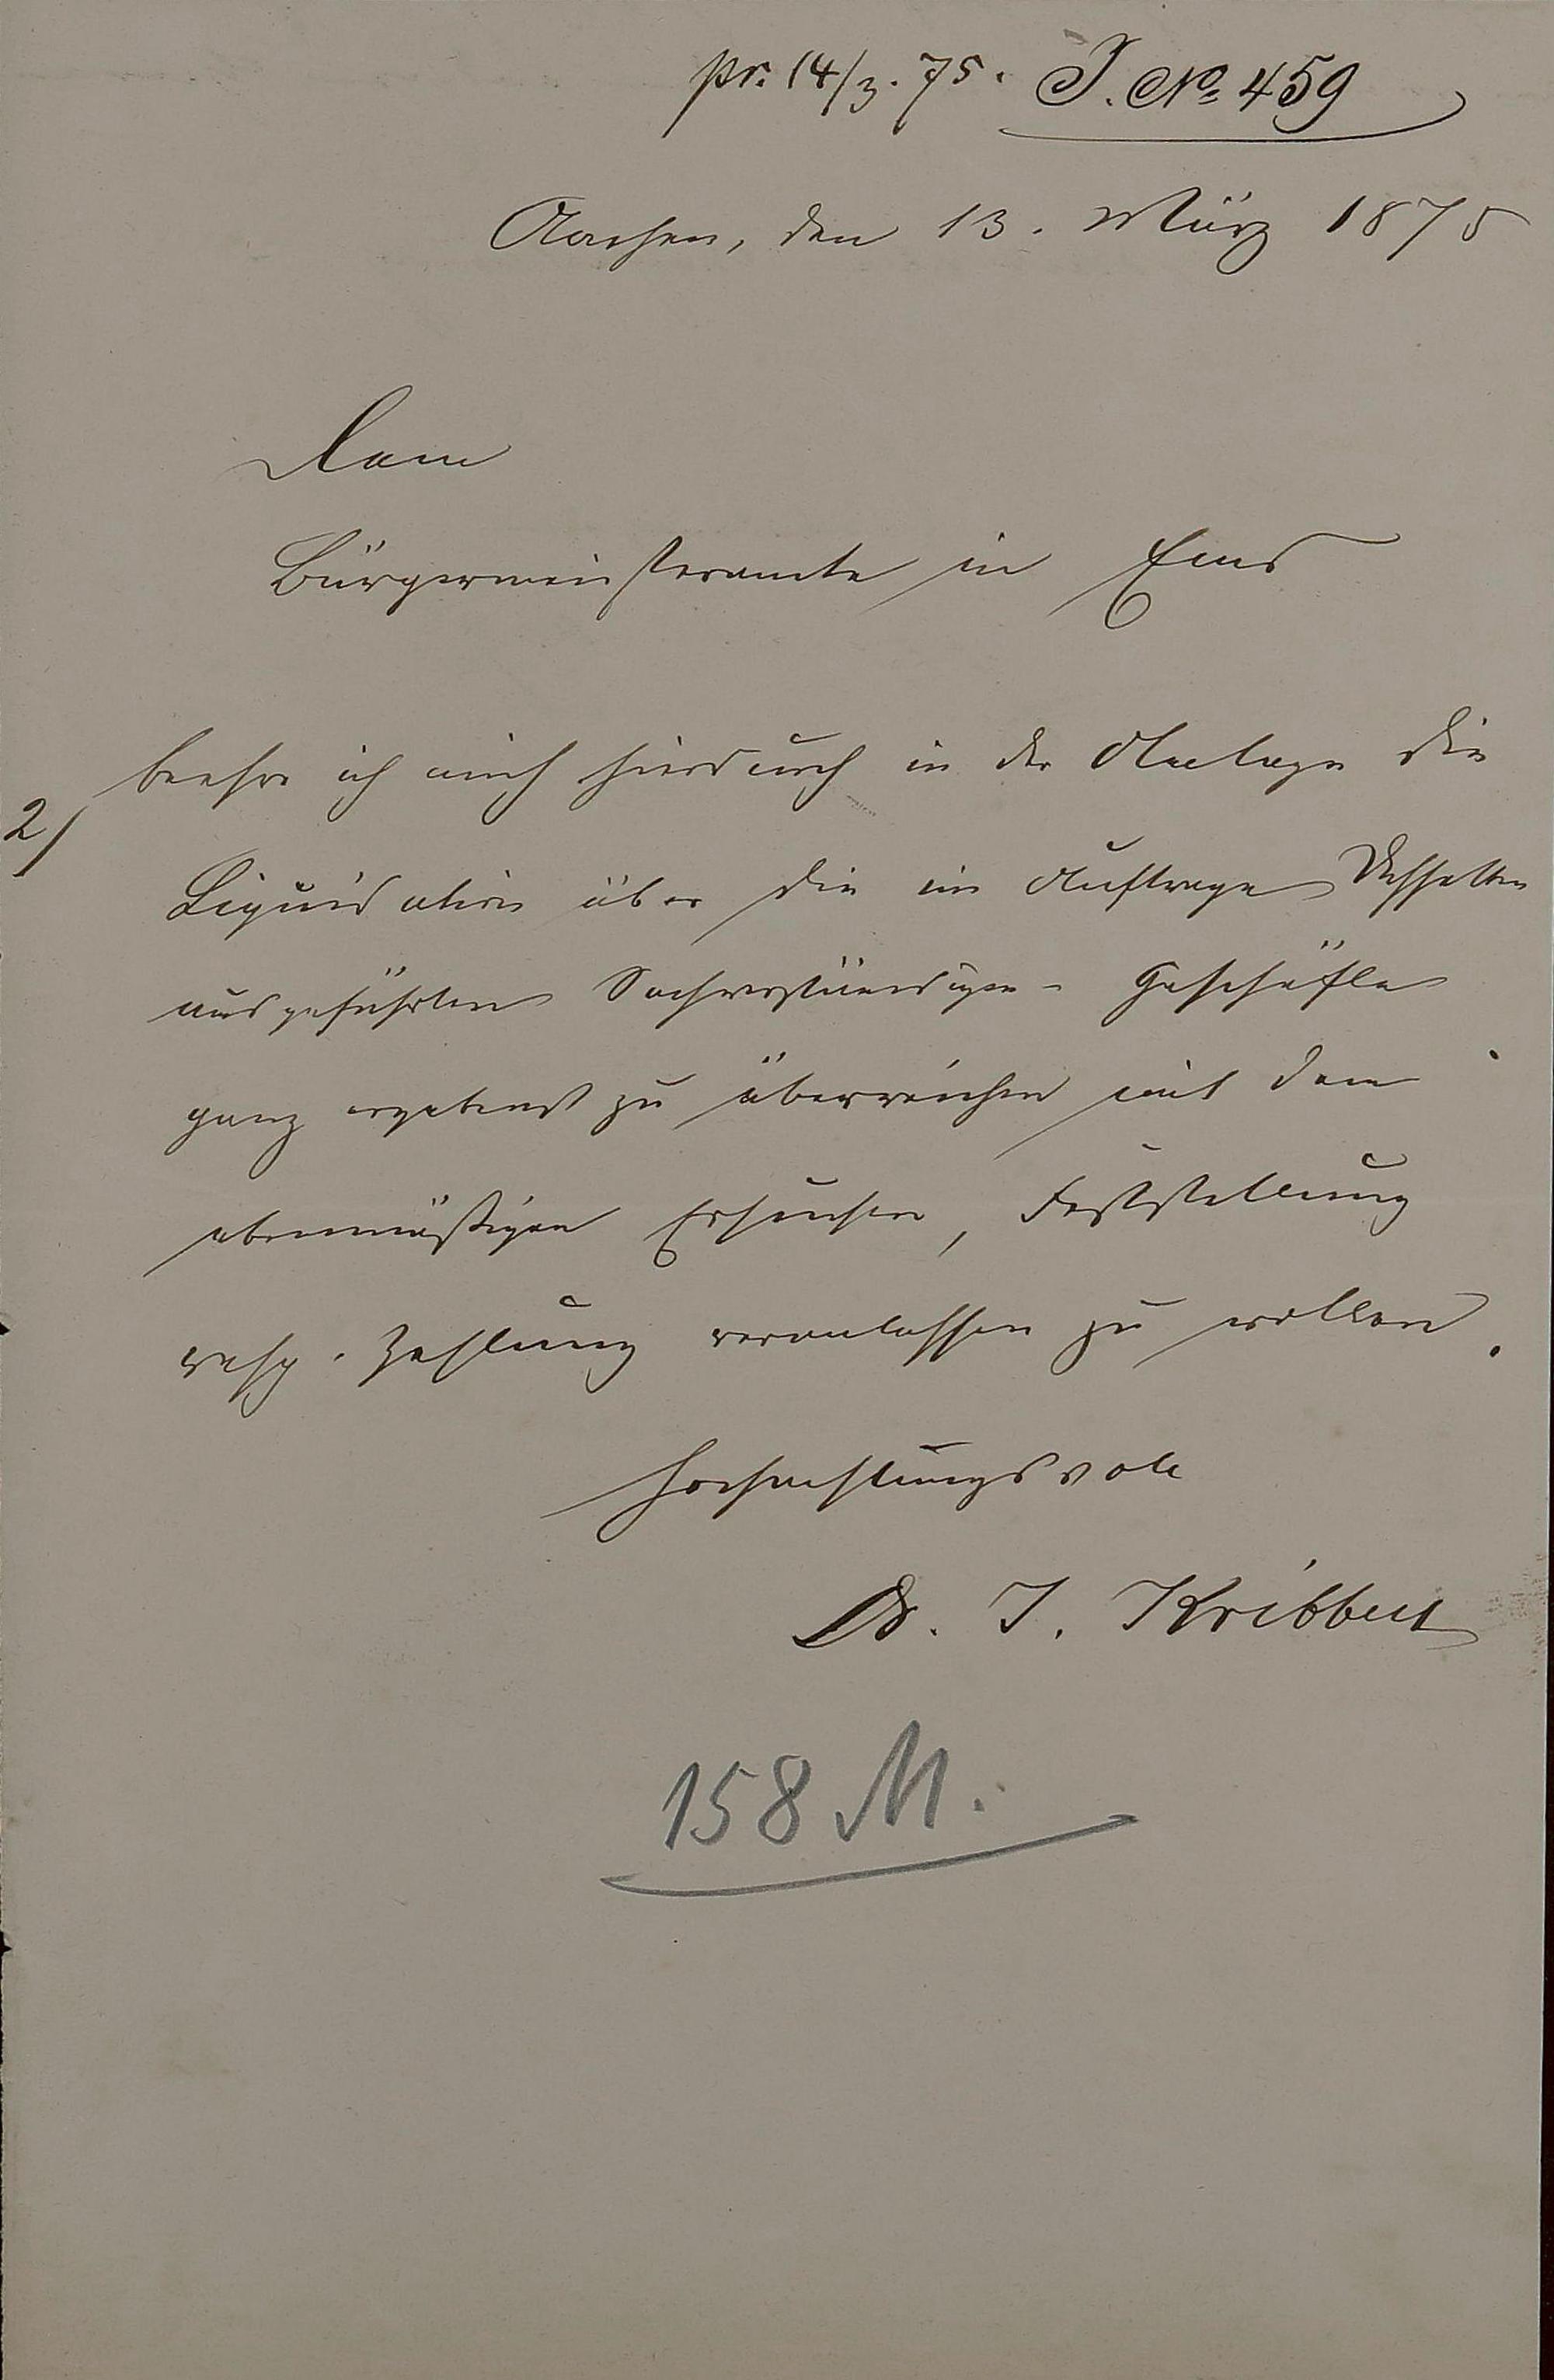 pr. 14/3. 75. J. No 459
Aachen, den 13. März 1875
Dem
Bürgermeisteramte in Ems
beehre ich mich hierdurch in der Anlage die
2/
Liquidation über die im Auftrage Desselben
ausgeführten Sachverständigen-Geschäfte
ganz ergebenst zu überreichen mit dem
ebenmäßigen Ersuchen, Feststellung
resp. Zahlung veranlassen zu wollen.
Hochachtungsvoll
Dr. J. Kribben
158 M.